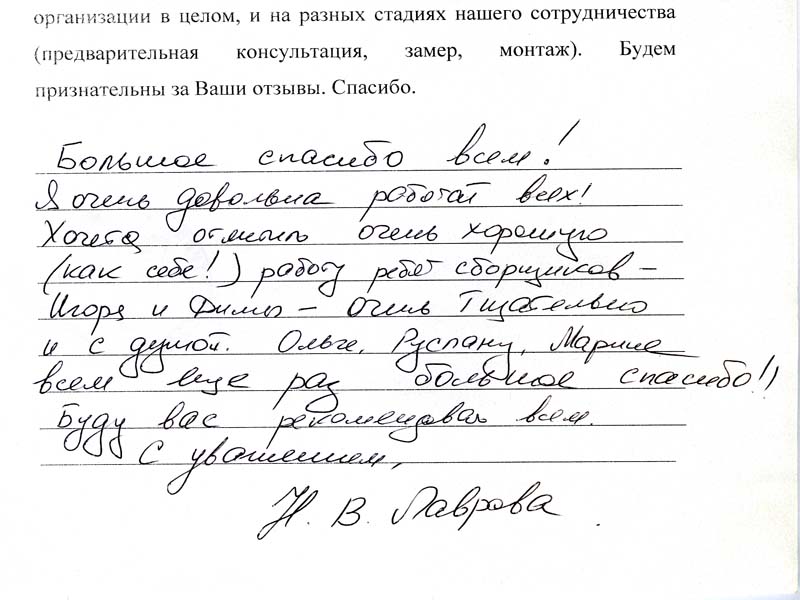 организации в целом, и на разных стадиях нашего сотрудничества
(предварительная консультация, замер, монтаж). Будем
признательны за Ваши отзывы. Спасибо.
Большое спасибо всем!
Я очень довольна работай всех!
Хочется отметить очень хорошую
(как себе!) работу ребят сборщиков –
Игоря и Димы – очень тщательно
и с душой. Ольге, Руслану, Марине
всем еще раз большое спасибо!)
Буду вас рекомендовать всем.
С уважением,
Н. В. Лаврова